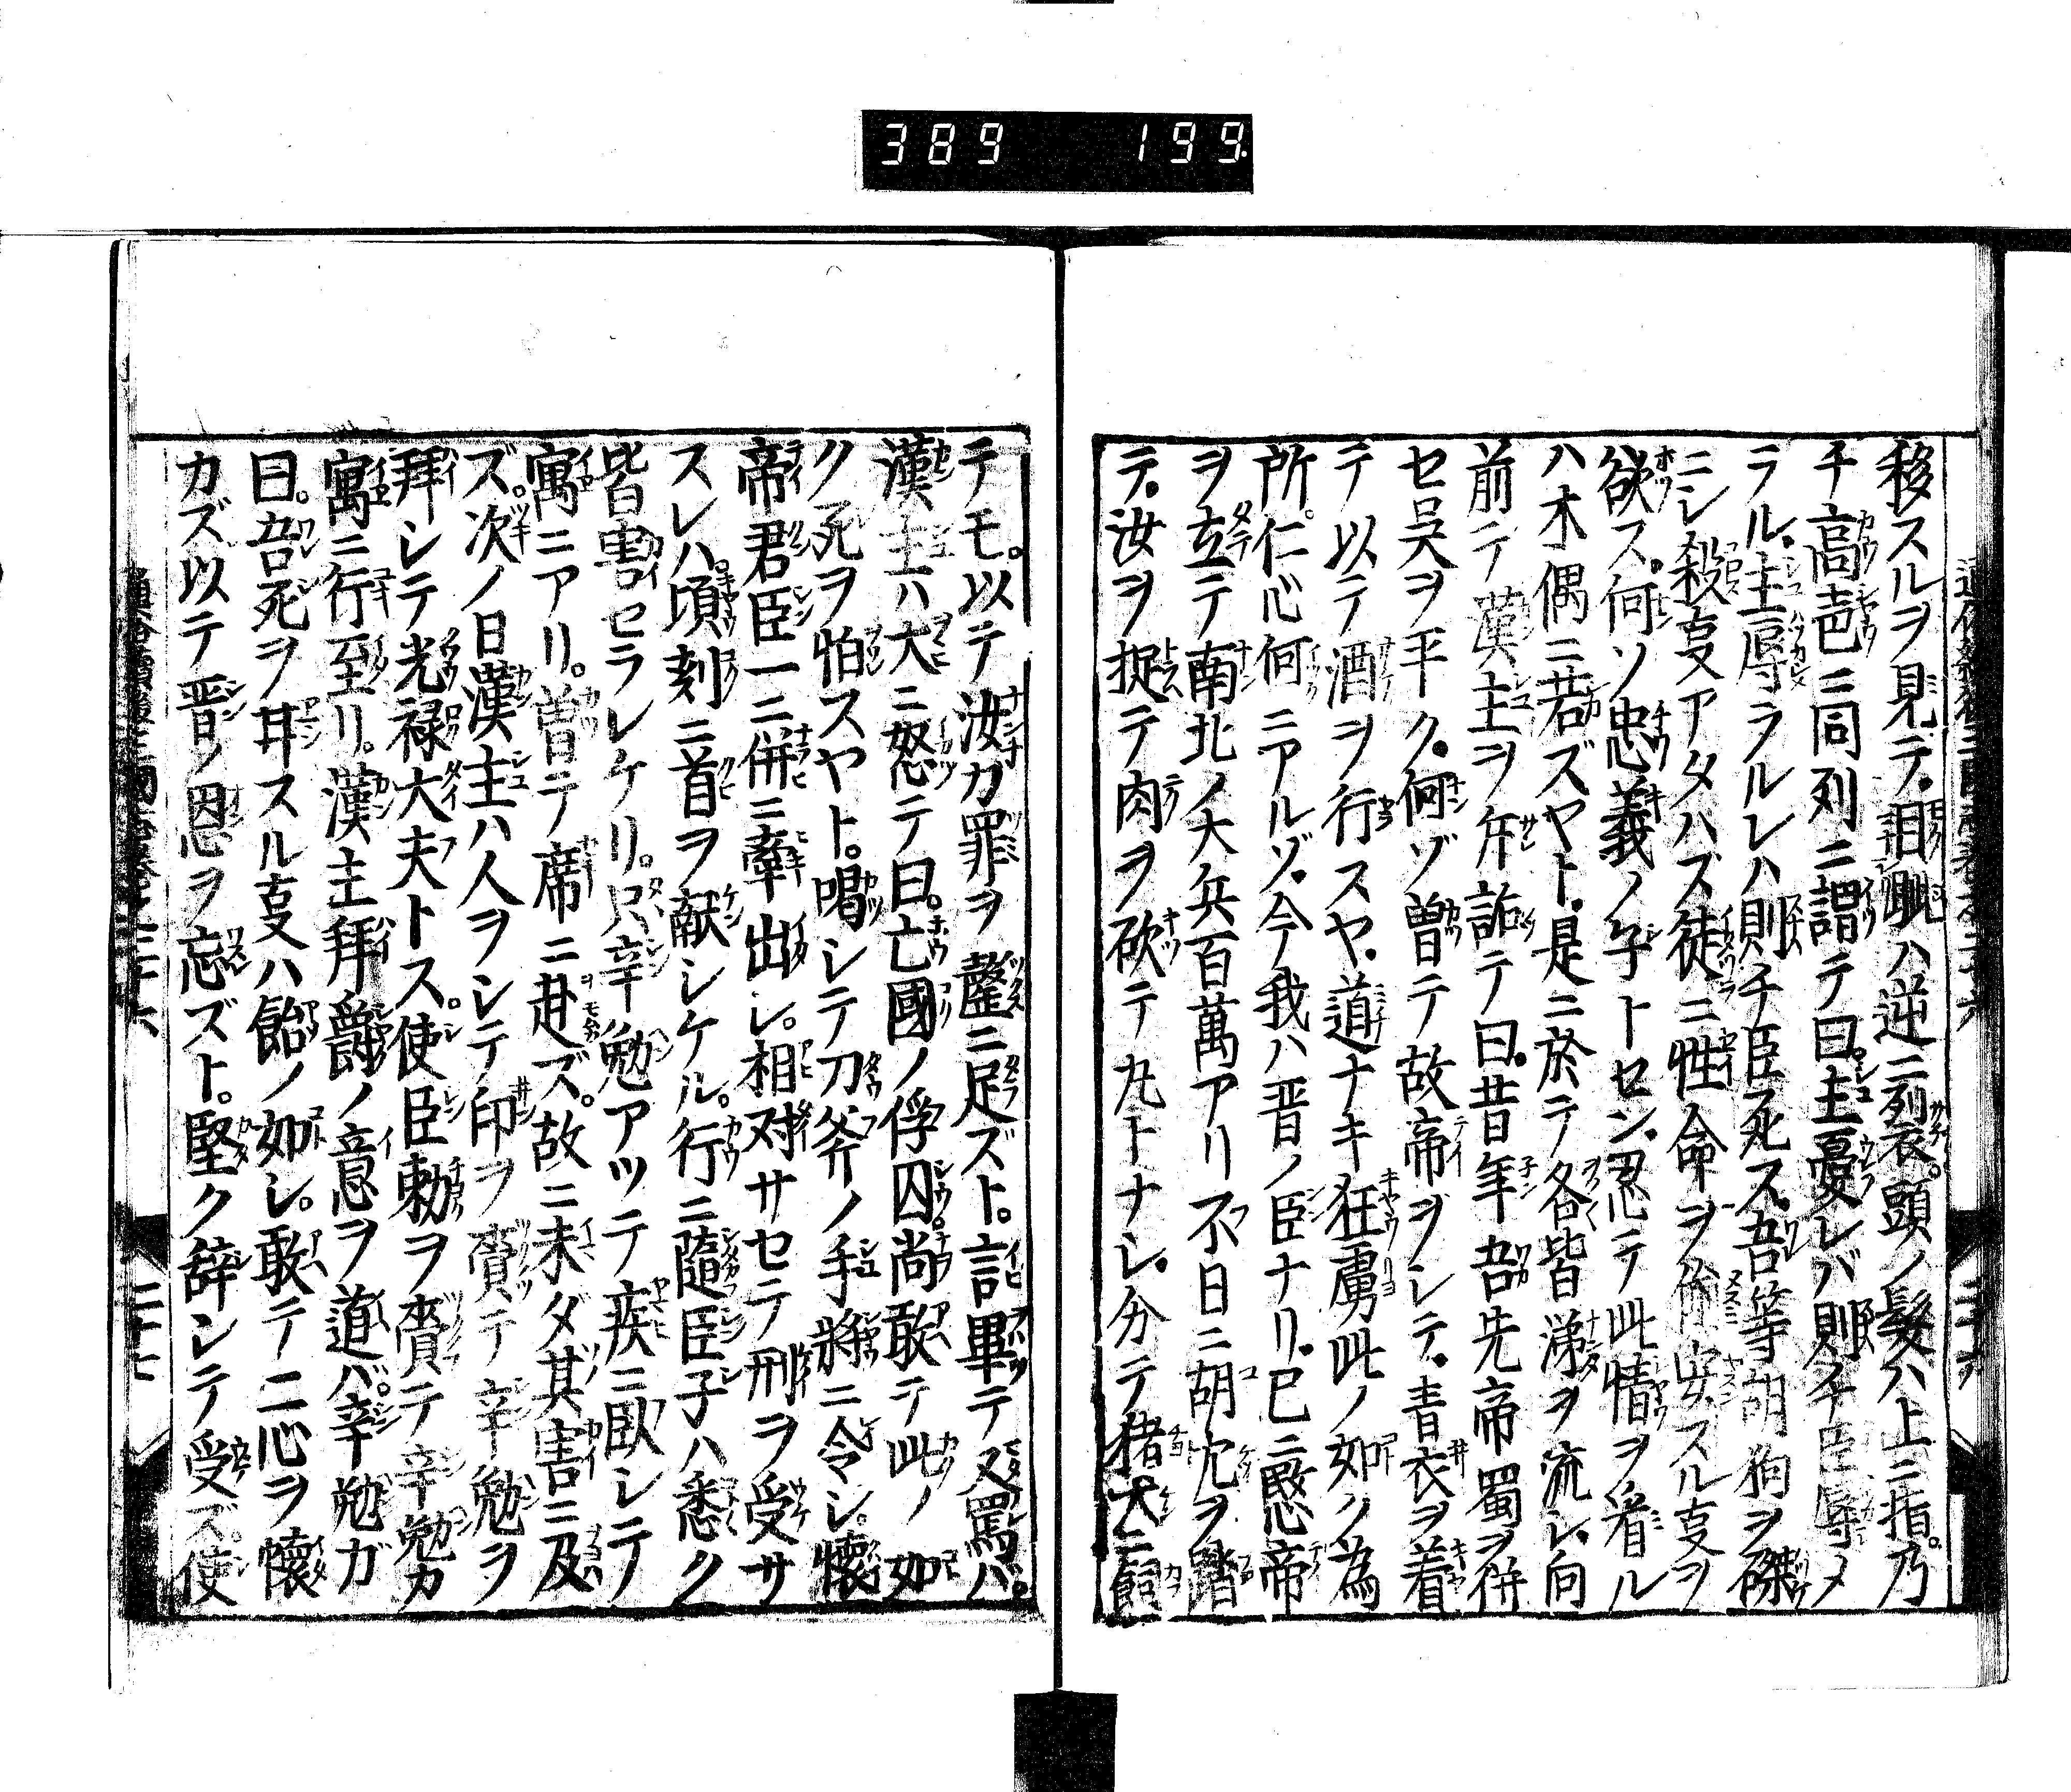 389 199
移スルヲ見テ.目眦ハ逆ニ裂。頭ノ髪ハ上ニ指。乃
チ高壱ニ同列ニ謂テ曰。主憂レバ則チ臣辱メ
ラル.主辱ラルレハ則チ臣死ス.吾等胡狗ヲ磔
ニシ殺亥アタハズ徒ニ性命ヲ偷安スル亥ヲ
欲ス。何ソ忠義ノ子トセン.忍テ此情ヲ看ル
ハ木偶ニ若ズヤト.是ニ於テ各皆涕ヲ流シ.向
前テ漢主ヲ詬テ曰。昔年吾先帝蜀ヲ併
セ吴ヲ平ク.何ゾ曽テ故帝ヲシテ.青衣ヲ着
テ以テ酒ヲ行スヤ.道ナキ狂虜此ノ如ク為
所。仁心何ニアルゾ.今我ハ晋ノ臣ナリ.已ニ愍帝
ヲ立テ南北ノ大兵百萬アリ不日ニ胡穴ヲ踏
テ.汝ヲ捉テ肉ヲ砍テ九下ナシ.分テ猪犬ニ飼
テモ。以テ汝ガ罪ヲ罄ニ足ズト。言畢テ又罵バ。
漢主ハ大ニ怒テ曰。亡國ノ俘囚。尚敢テ此ノ如
ク死ヲ怕スヤト。喝シテ刀斧ノ手將ニ令シ。懐
帝君臣一ニ併ニ牽出シ。相对サセテ刑ヲ受サ
スレハ。頃刻ニ首ヲ献シケル。行ニ隨臣子ハ悉ク
皆害セラレケリ。只辛勉アツテ疾ニ臥シテ
寓ニアリ。曽テ席ニ赴ズ。故ニ未ダ其害ニ及
ズ。次ノ日漢主ハ人ヲシテ印ヲ賷テ辛勉ヲ
拜シテ光禄大夫トス。使臣勅ヲ賷テ辛勉カ
寓ニ行至リ。漢主拜爵ノ意ヲ道バ。辛勉ガ
曰。吾死ヲ耳スル亥ハ飴ノ如シ。敢テ二心ヲ懐
カズ以テ晋ノ恩ヲ忘ズト。堅ク辞シテ受ズ使
二十七